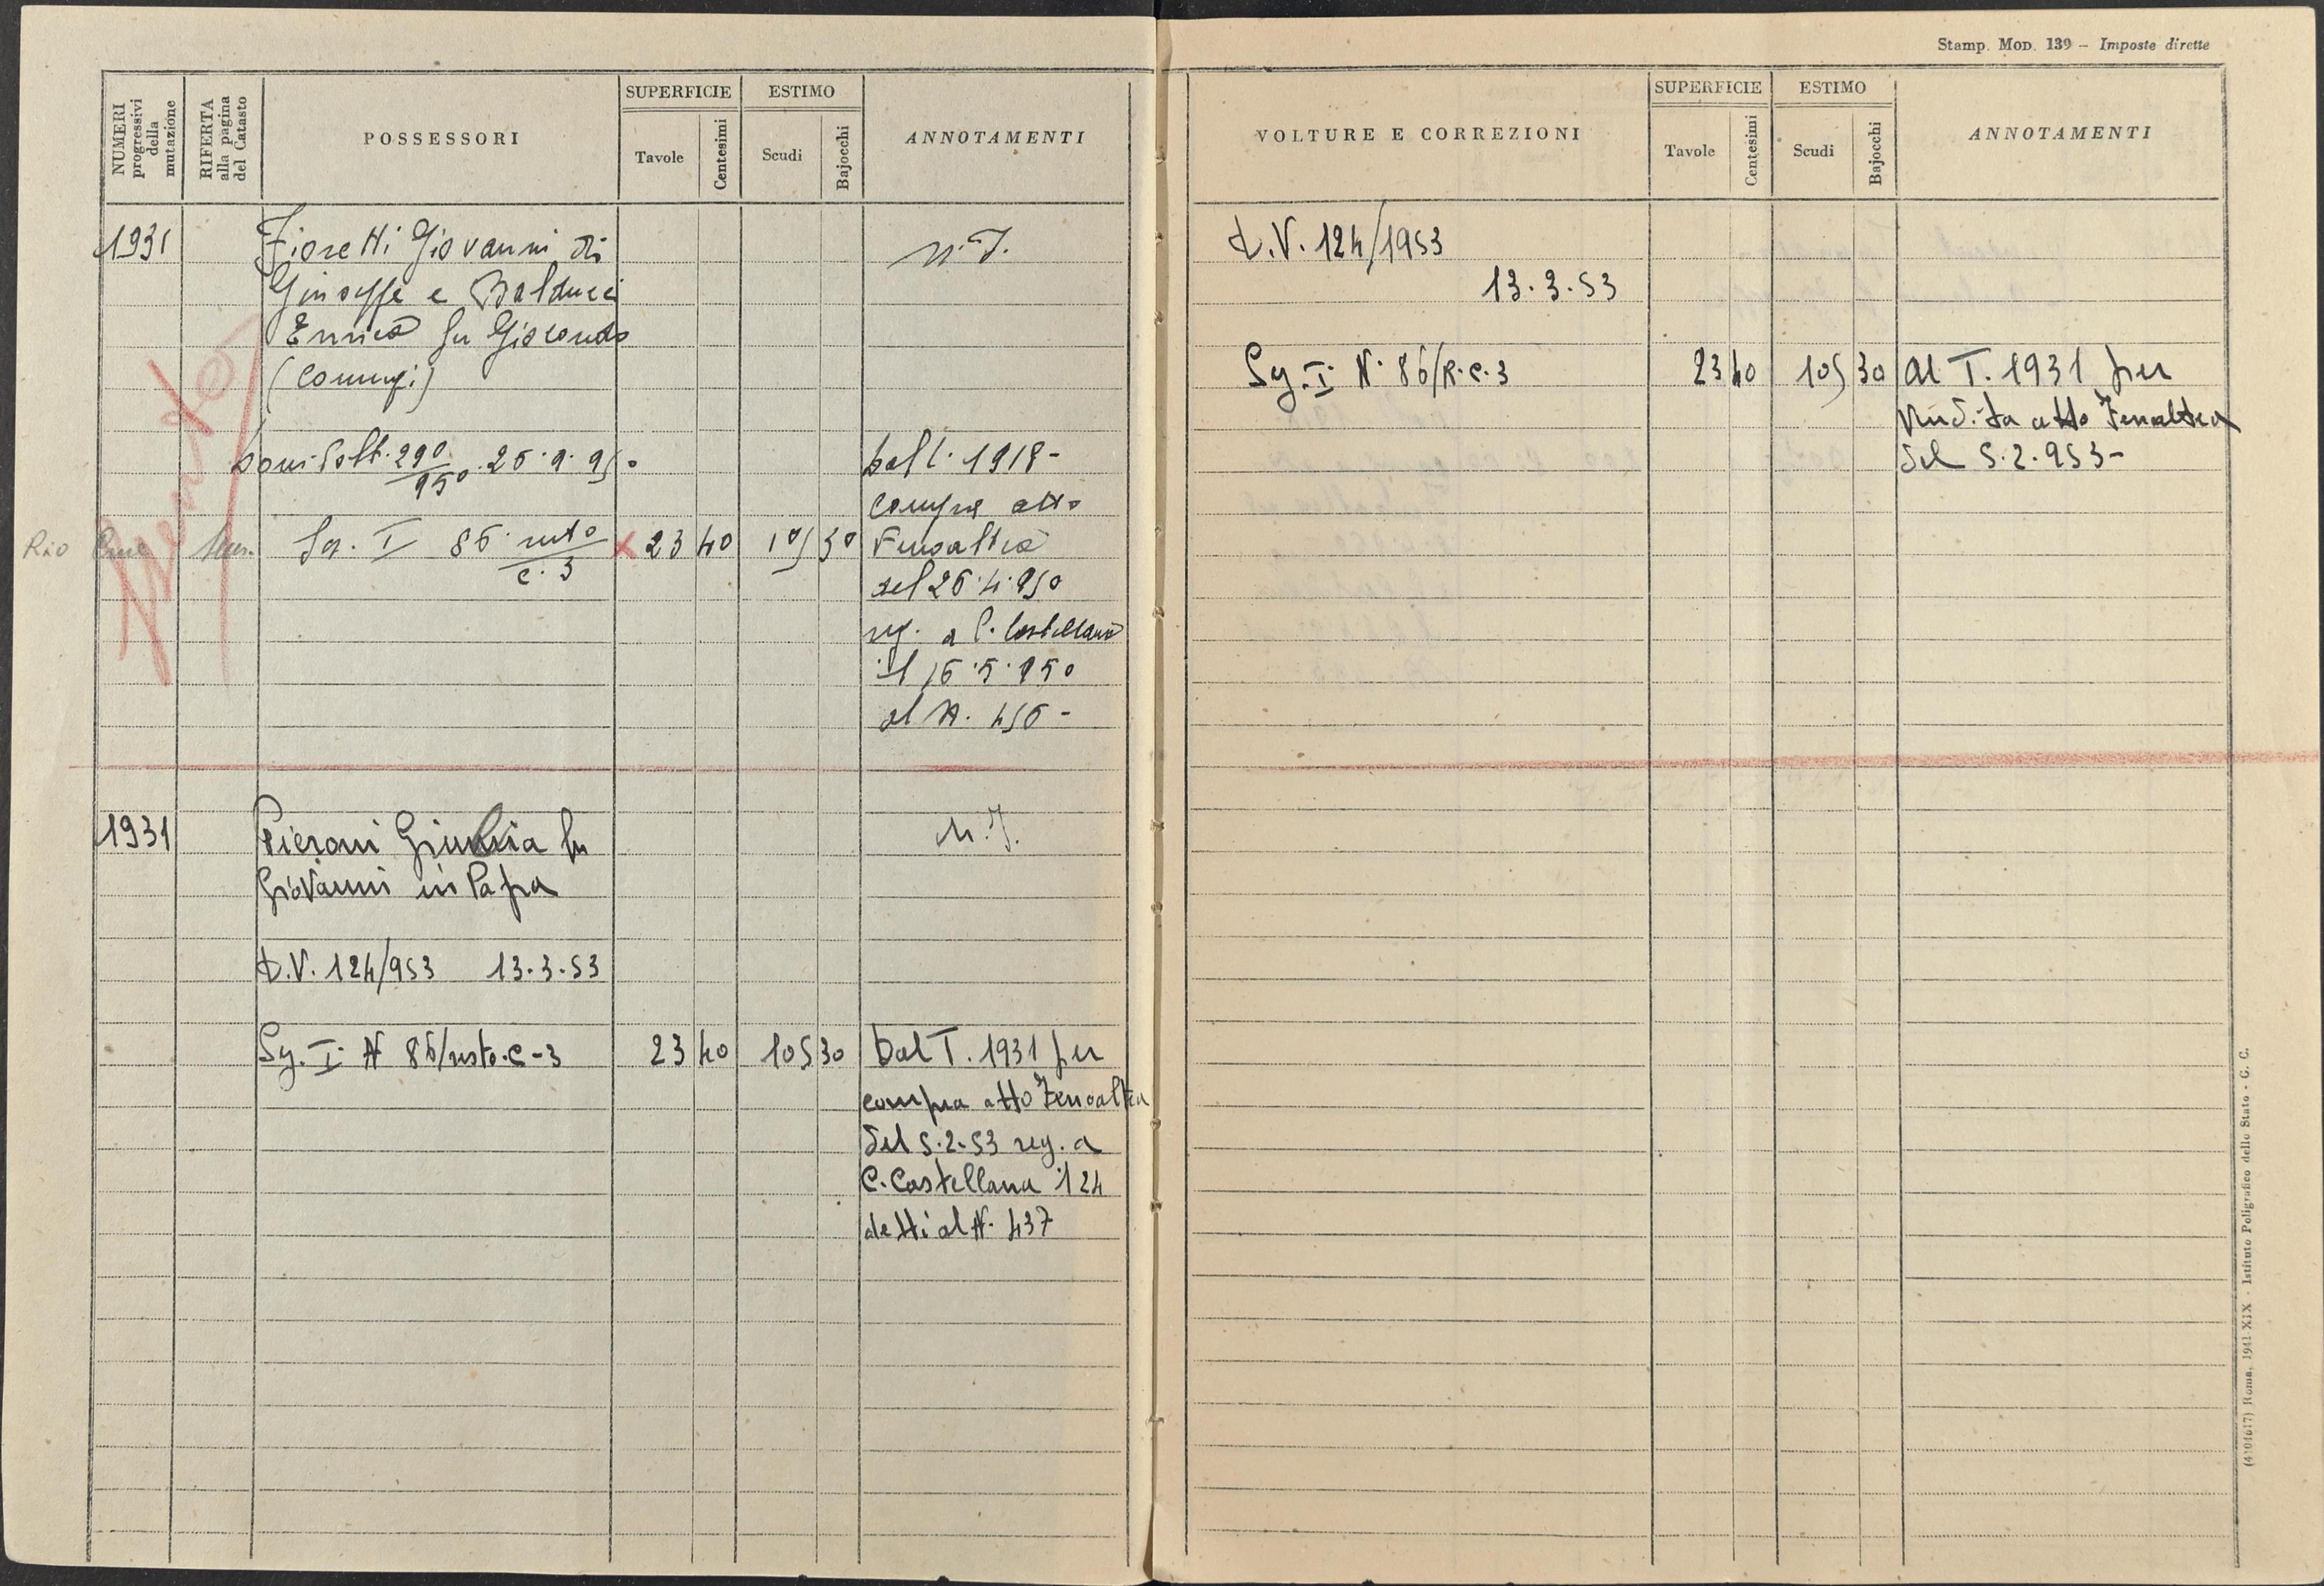 Stamp. Mod. 139 - Imposte dirette
NUMERI progressivi della mutazione
RIFERTA alla pagina del Catasto
POSSESSORI
SUPERFICIE
Tavole
Centesimi
ESTIMO
Scudi
Bajocchi
ANNOTAMENTI
1931
Fioretti Giovanni di
N.T.
Giuseppe e Balducci
Enrica fu Giocondo
(Coniugi)
290/950 26.9.950
Dal T. 1918-
compra atto
Rio
Sez. I 86 resto/c.3
x 23 40
105 30
Fenoaltea
del 26.4.950
reg. a C. Castellana
il 16.5.950
al N. 456-
1931
Pieroni Giulia fu
N.T.
Giovanni in Papa
D.V. 124/953 13.3.53
Sez. I N 86/resto.c-3
23 40
105 30
Dal T. 1931 per
compra atto Fenoaltea
del 5.2.53 reg. a
C. Castellana 124
detti al N. 437
VOLTURE E CORREZIONI
SUPERFICIE
Tavole
Centesimi
ESTIMO
Scudi
Bajocchi
ANNOTAMENTI
D.V. 124/1953
13.3.53
Sez. I N. 86/R.c.3
23 40
105 30
Al T. 1931 per
Vendita atto Fenoaltea
del 5.2.953-
(4104617) Roma, 1941-XIX - Istituto Poligrafico dello Stato - G. C.